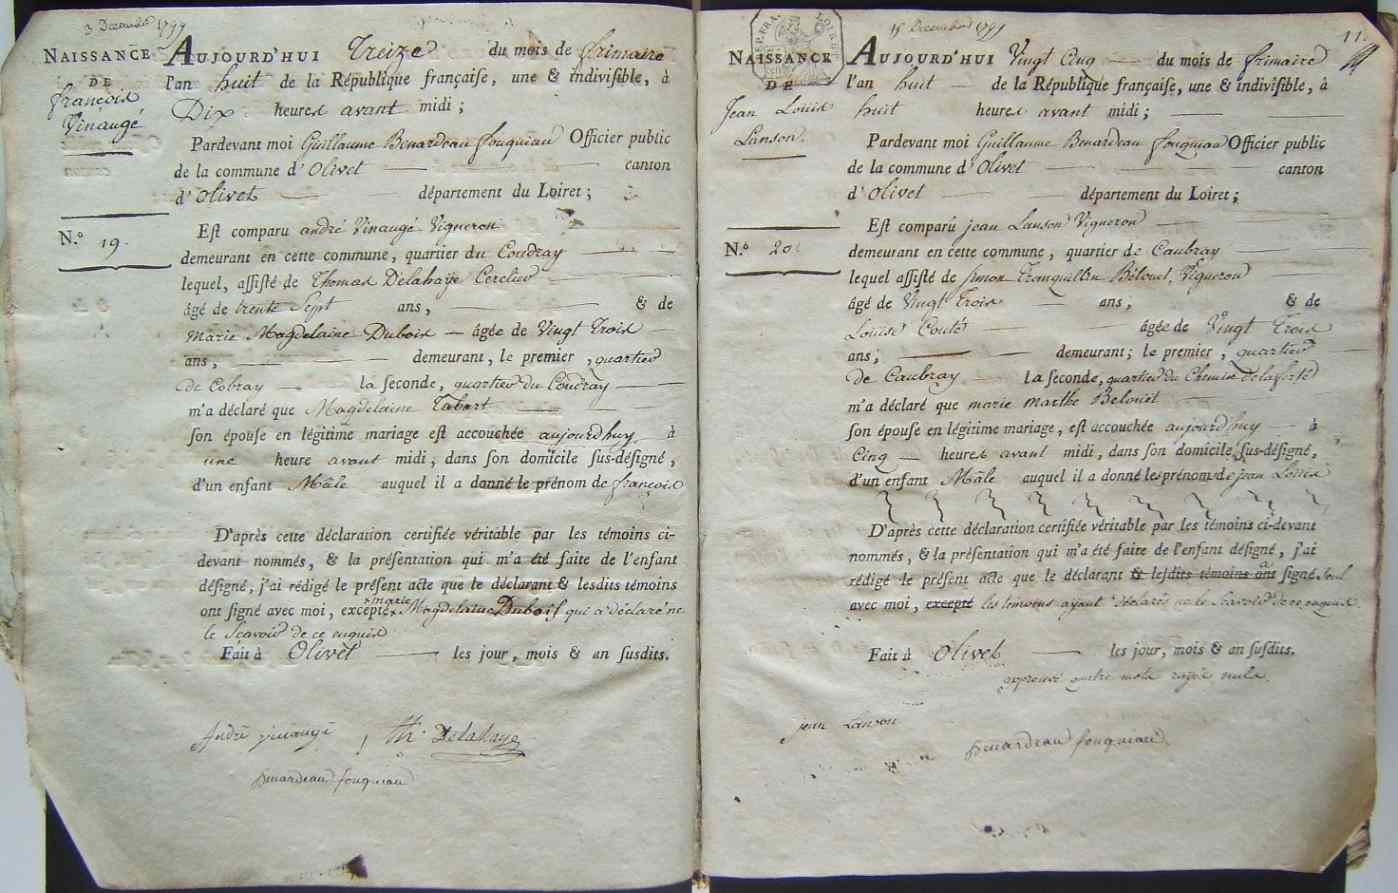 3 Decembre 1799
NAISSANCE
DE
françois
Vinaugé
N.° 19.
AUJOURD'HUI Treize du mois de frimaire
l'an huit de la République françaiſe, une & indiviſible, à
Dix heures avant midi ;
Pardevant moi Guillaume Benardeau fouquiau Officier public
de la commune d'Olivet canton
d'Olivet département du Loiret ;
Eſt comparu andré Vinaugé Vigneron
demeurant en cette commune, quartier du Coudray
lequel, aſſiſté de Thomas Delahaye Cerclier
âgé de trente Sept ans, & de
Marie Magdelaine Dubois âgée de Vingt Trois
ans, demeurant, le premier, quartier
de Cobray la ſeconde, quartier du Coudray
m'a déclaré que Magdelaine Tabart
ſon épouſe en légitime mariage eſt accouchée aujourdhuy à
une heure avant midi, dans ſon domicile ſus-déſigné,
d'un enfant Mâle auquel il a donné le prénom de françois
D'après cette déclaration certifiée véritable par les témoins ci-
devant nommés, & la préſentation qui m'a été faite de l'enfant
déſigné, j'ai rédigé le préſent acte que le déclarant & leſdits témoins
ont ſigné avec moi, excepté marie Magdelaine Dubois qui a déclaré ne
le Scavoir de ce enquis
Fait à Olivet les jour, mois & an ſuſdits.
André vinaugé
th. Delahaye
Benardeau fouquiau
15 Decembre 1799
11
NAISSANCE
DE
Jean Louis
Lanson.
N.° 20
AUJOURD'HUI Vingt Cinq du mois de frimaire
l'an huit de la République françaiſe, une & indiviſible, à
huit heures avant midi ;
Pardevant moi Guillaume Benardeau fouquiau Officier public
de la commune d'Olivet canton
d'Olivet département du Loiret ;
Eſt comparu jean Lanson Vigneron
demeurant en cette commune, quartier de Caubray
lequel aſſiſté de Simon Tranquillin Belouet, Vigneron
âgé de Vingt Trois ans, & de
Louise Couté âgée de Vingt Trois
ans, demeurant ; le premier, quartier
de Caubray la ſeconde, quartier du Chemin de la ferté
m'a déclaré que marie marthe Belouet
ſon épouſe en légitime mariage, eſt accouchée aujourdhuy à
Cinq heures avant midi, dans ſon domicile ſus-déſigné,
d'un enfant Mâle auquel il a donné les prénoms de jean Louis
D'après cette déclaration certifiée véritable par les témoins ci-devant
nommés, & la préſentation qui m'a été faite de l'enfant déſigné, j'ai
rédigé le préſent acte que le déclarant & leſdits témoins ont a ſigné Seul
avec moi, excepté les témoins ayant déclarés ne le Scavoir de ce enquis
Fait à Olivet les jour, mois & an ſuſdits.
approuvé quatre mots rayés nuls.
jean Lanson
Benardeau fouquiau